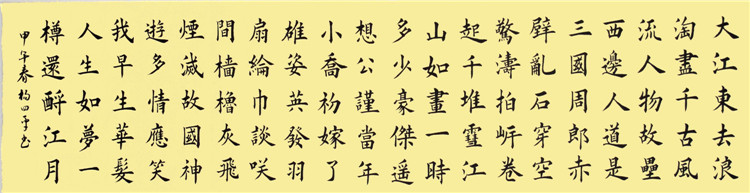 大江東去浪
淘盡千古風
流人物故壘
西邊人道是
三國周郎赤
壁亂石穿空
驚濤拍岸卷
起千堆雪江
山如畫一時
多少豪傑遥
想公謹當年
小喬初嫁了
雄姿英發羽
扇綸巾談咲
間檣櫓灰飛
煙滅故國神
遊多情應笑
我早生華髮
人生如夢一
樽還酹江月
甲午春